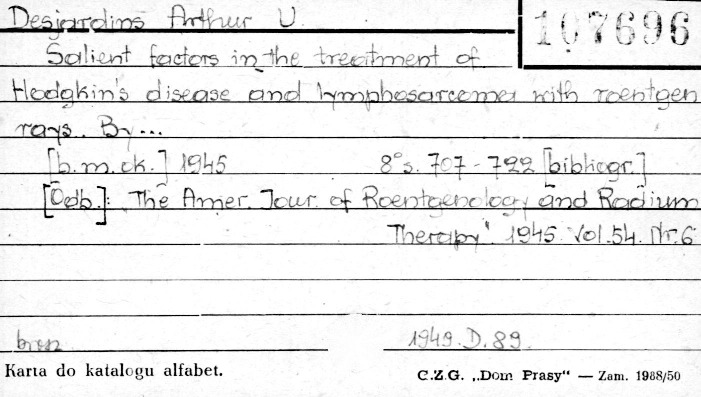 Desjardins Arthur U.
107696
Salient factors in the treatment of
Hodgkin's disease and lymphosarcoma with roentgen
rays. By...
[b.m.ok.] 1945 8°s. 707-722 [bibliogr.]
[Odb.]: "The Amer. Jour. of Roentgenology and Radium
Therapy" 1945. Vol. 54. Nr. 6
1949.D.89.
Karta do katalogu alfabet.
C.Z.G. „Dom Prasy" — Zam. 1988/50